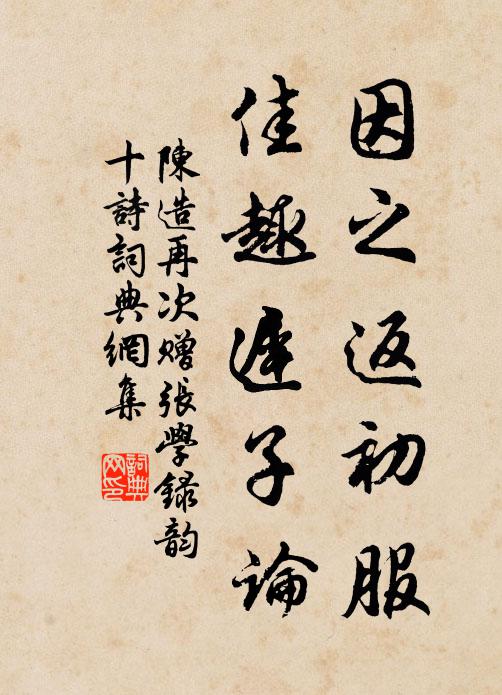 因之返初服
佳趣遲子論
陳造再次贈張學録韵
十詩詞典網集
詞典網印